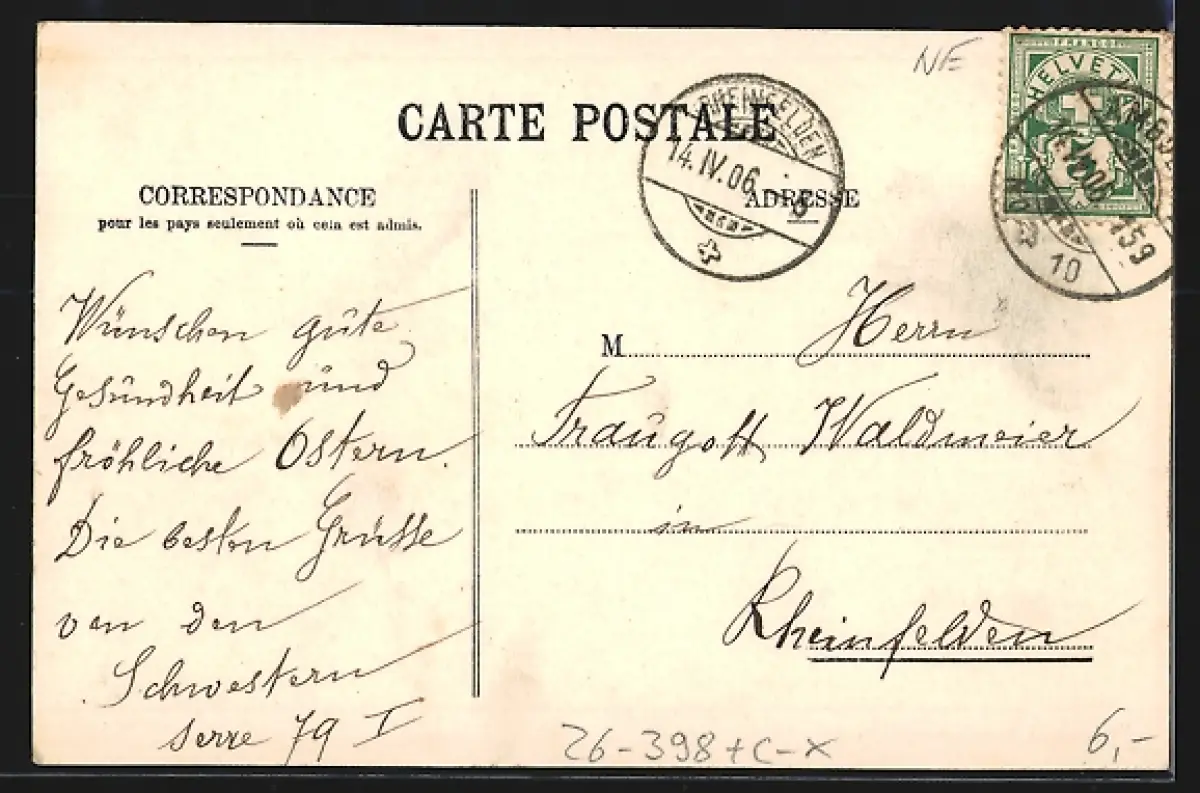 NE
FRANCO
HELVETIA
CARTE POSTALE
RHEINFELDEN
14.IV.06.
CORRESPONDANCE
pour les pays seulement où cela est admis.
ADRESSE
10
Wünschen gute
Gesundheit und
fröhliche Ostern.
Die besten Grüsse
von den
Schwestern
serre 79 I
M Herrn
Traugott Waldmeier
in
Rheinfelden
26-398+C-X
6,-